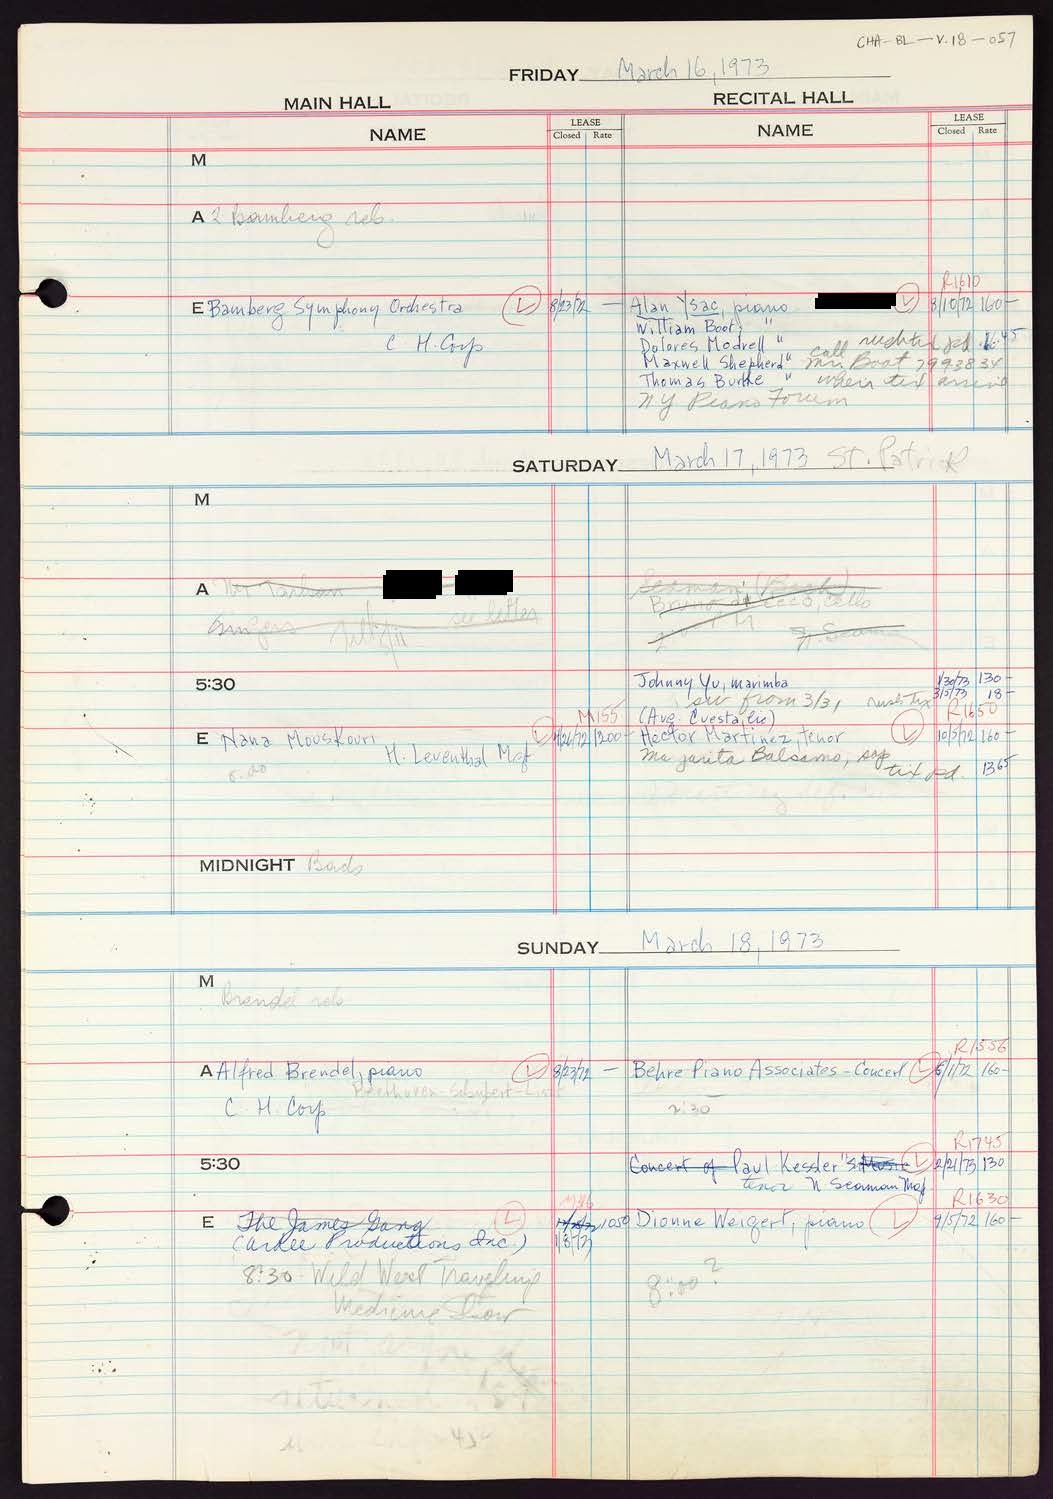 CHA-BL-V.18-057
FRIDAY March 16, 1973
MAIN HALL RECITAL HALL
NAME LEASE Closed Rate NAME LEASE Closed Rate
M
A 2 Bamberg reh.
R1610
E Bamberg Symphony Orchestra L 8/23/72 — Alan Ysac, piano L 8/10/72 160-
William Boot, "
C H. Corp Dolores Modrell " pd 16.45
Maxwell Shepherd " call Mr. Boot 7993834
Thomas Burke " when tix arrive
NY Piano Forum
SATURDAY March 17, 1973 St. Patrick
M
A
Singers see letter
Bruno di Cecco, cello
N. Seaman
5:30 Johnny Yu, marimba 1/30/73 130-
from 3/3, 3/5/73 18-
M155 (Aug. Cuesta, lic) R1650
E Nana Mouskouri L 4/26/72 1200- Hector Martinez, tenor L 10/5/72 160-
H. Leventhal Mgt Margarita Balsamo, sop
8:00 tix pd. 13.65
MIDNIGHT Bods
SUNDAY March 18, 1973
M
Brendel reh
R1556
A Alfred Brendel, piano L 8/23/72 — Behre Piano Associates - Concert L 6/1/72 160-
Beethoven-Schubert-Liszt
C. H. Corp 2:30
R1745
5:30 Concert of Paul Kessler "s Music L 2/21/73 130
tenor N Seaman Mgt
M86 R1630
E The James Gang L 1050 Dionne Weigert, piano L 9/5/72 160-
(Cardee Productions Inc.) 1/8/73
8:30 Wild West Traveling 8:00?
Medicine Show